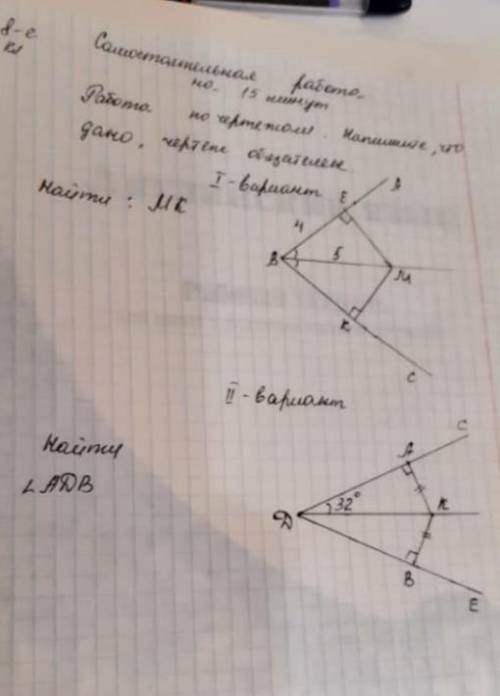 8-е
кл
Самостоятельная работа
на 15 минут
Работа по чертежам. Напишите, что
дано, чертеж обязателен.
I-вариант
Найти: МК
E
4
B
5
M
K
C
II-вариант
Найти
∠АДВ
C
A
32°
К
Д
B
E